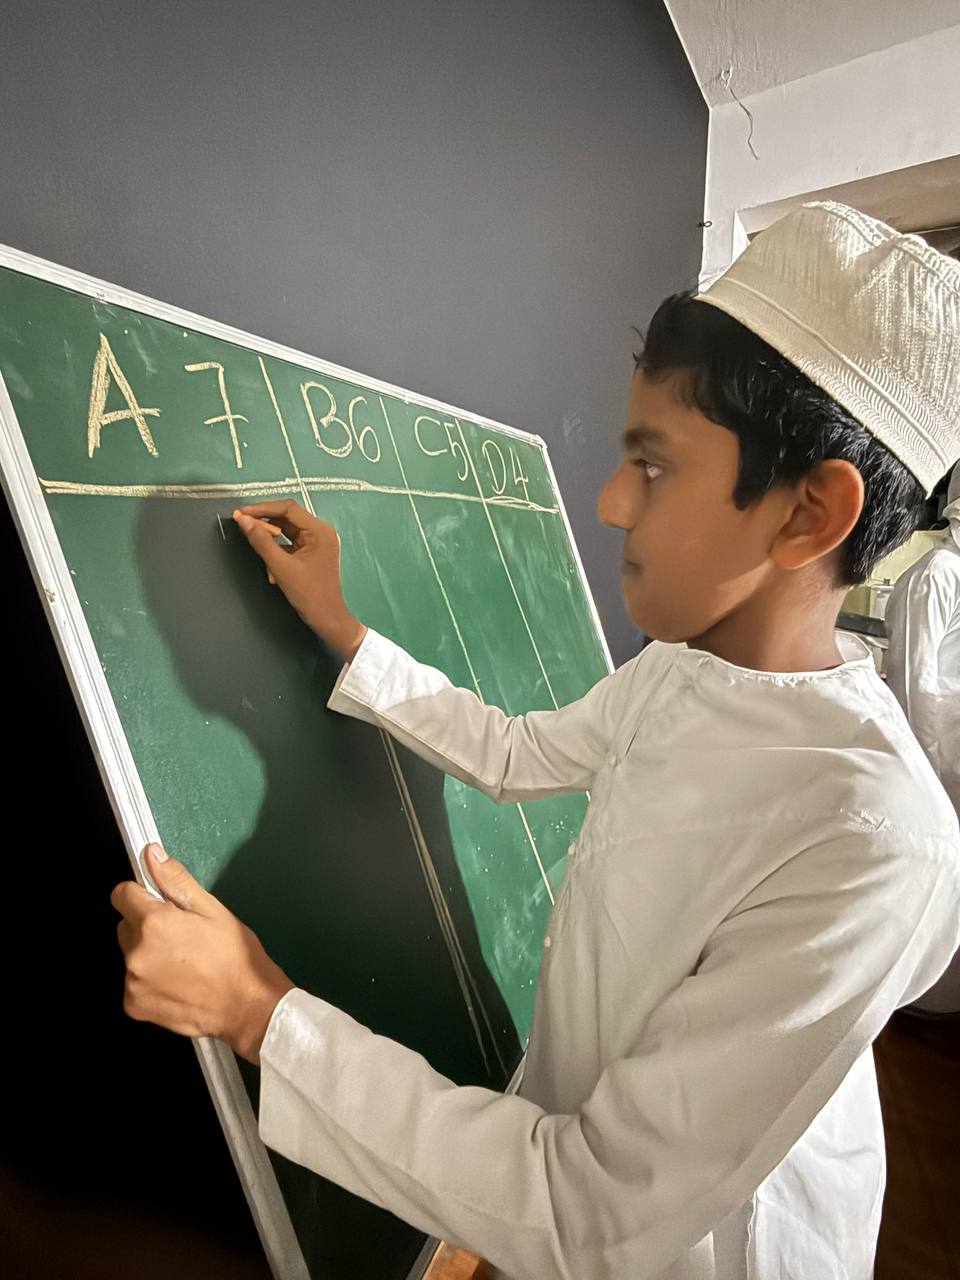 A 7 B6 C5 D4